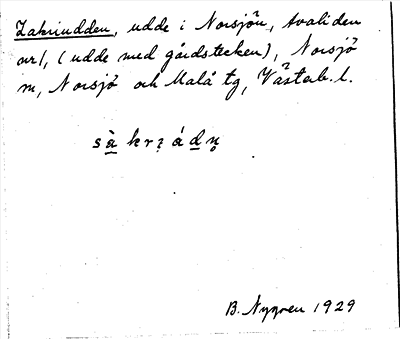 Zakriudden, udde i Norsjön, Avaliden
nr 1, (udde med gårdstecken), Norsjö
sn, Norsjö och Malå tg, Västerb. l.
B. Nygren 1929